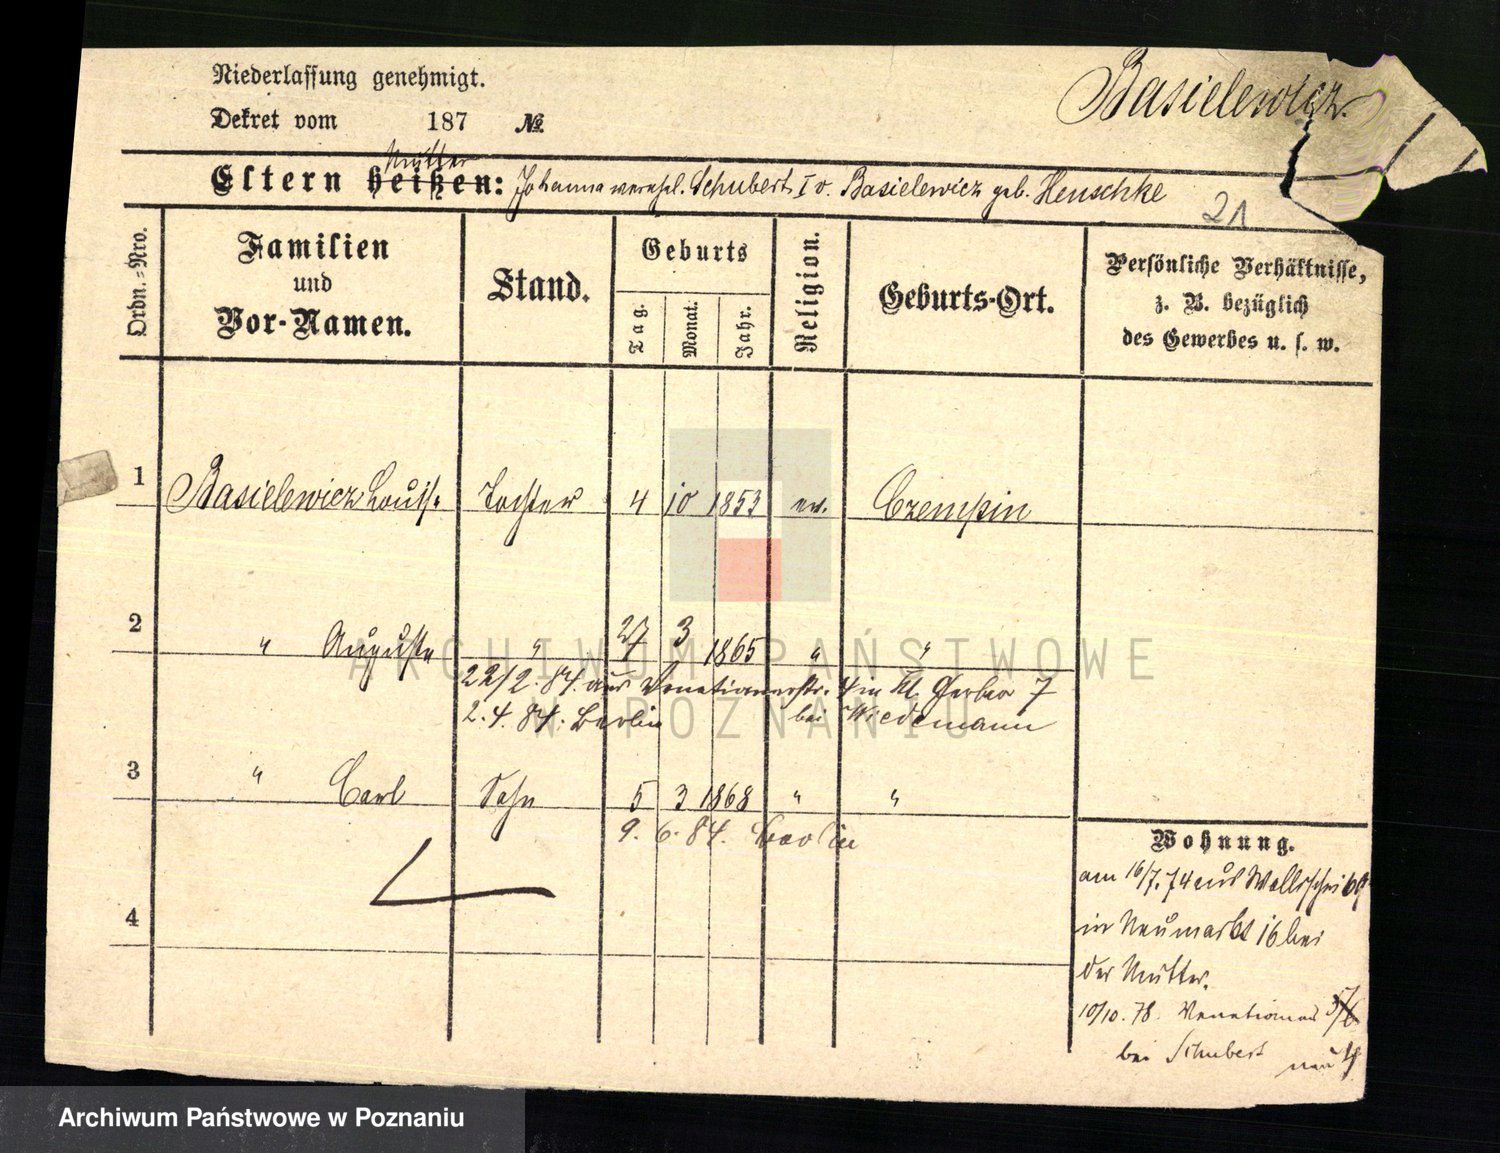 Niederlassung genehmigt.
Basielewicz.
Dekret vom 187 №
Mutter
Eltern heißen: Johanna verehl. Schubert I v. Basielewicz geb. Henschke
21
Ordn.-Nro.
Familien und Vor-Namen.
Stand.
Geburts
Tag.
Monat.
Jahr.
Religion.
Geburts-Ort.
Persönliche Verhältnisse,
z. B. bezüglich
des Gewerbes u. s. w.
1 Basielewicz Louise Tochter 4 10 1853 ev. Czempin
2 " Auguste " 27 3 1865 " "
22/2. 84 aus Venetianerstr. 4 in Kl. Gerber 7
2. 4. 84. Berlin bei Wiedemann
3 " Carl Sohn 5 3 1868 " "
9. 6. 84. Berlin
4
Wohnung.
am 16/7. 74 aus
in Neumarkt 16 bei
der Mutter.
10/10. 78. Venetianer 5/6
bei Schubert
neu 4
ARCHIWUM PAŃSTWOWE
W POZNANIU
Archiwum Państwowe w Poznaniu